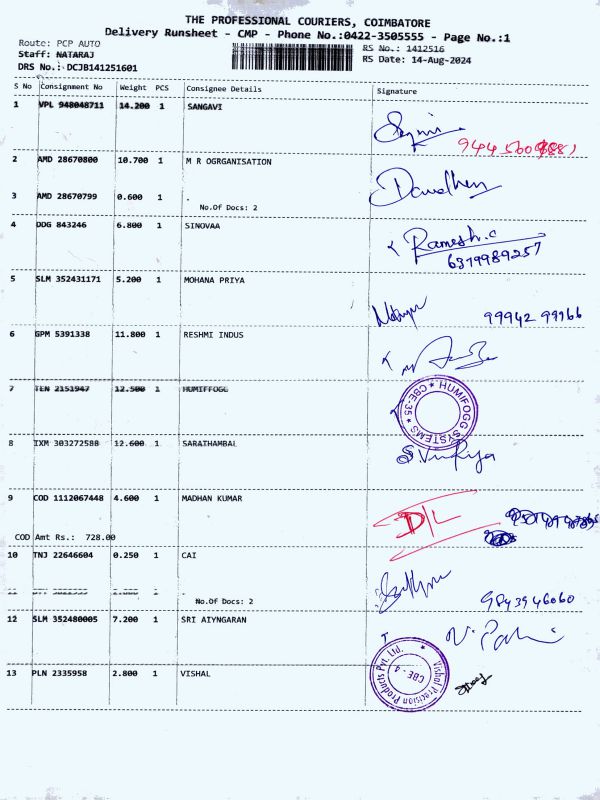 THE PROFESSIONAL COURIERS, COIMBATORE
Delivery Runsheet - CMP - Phone No.:0422-3505555 - Page No.:1
Route: PCP AUTO
Staff: NATARAJ
DRS No.: DCJB141251601
RS No.: 1412516
RS Date: 14-Aug-2024
S No Consignment No Weight PCS Consignee Details Signature
1 VPL 948048711 14.200 1 SANGAVI
2 AMD 28670800 10.700 1 M R OGRGANISATION
3 AMD 28670799 0.600 1 .
No.Of Docs: 2
4 DDG 843246 6.800 1 SINOVAA
Ramesh.c
6379989257
5 SLM 352431171 5.200 1 MOHANA PRIYA
99942 99166
6 GPM 5391338 11.800 1 RESHMI INDUS
7 TEN 2151947 12.500 1 HUMIFFOGG
HUMIFOGG SYSTEMS
CBE-35
8 IXM 303272588 12.600 1 SARATHAMBAL
9 COD 1112067448 4.600 1 MADHAN KUMAR
D/L
COD Amt Rs.: 728.00
10 TNJ 22646604 0.250 1 CAI
11
No.Of Docs: 2
9843946060
12 SLM 352480005 7.200 1 SRI AIYNGARAN
13 PLN 2335958 2.800 1 VISHAL
Vishal Precision Products Pvt. Ltd.
CBE - 4